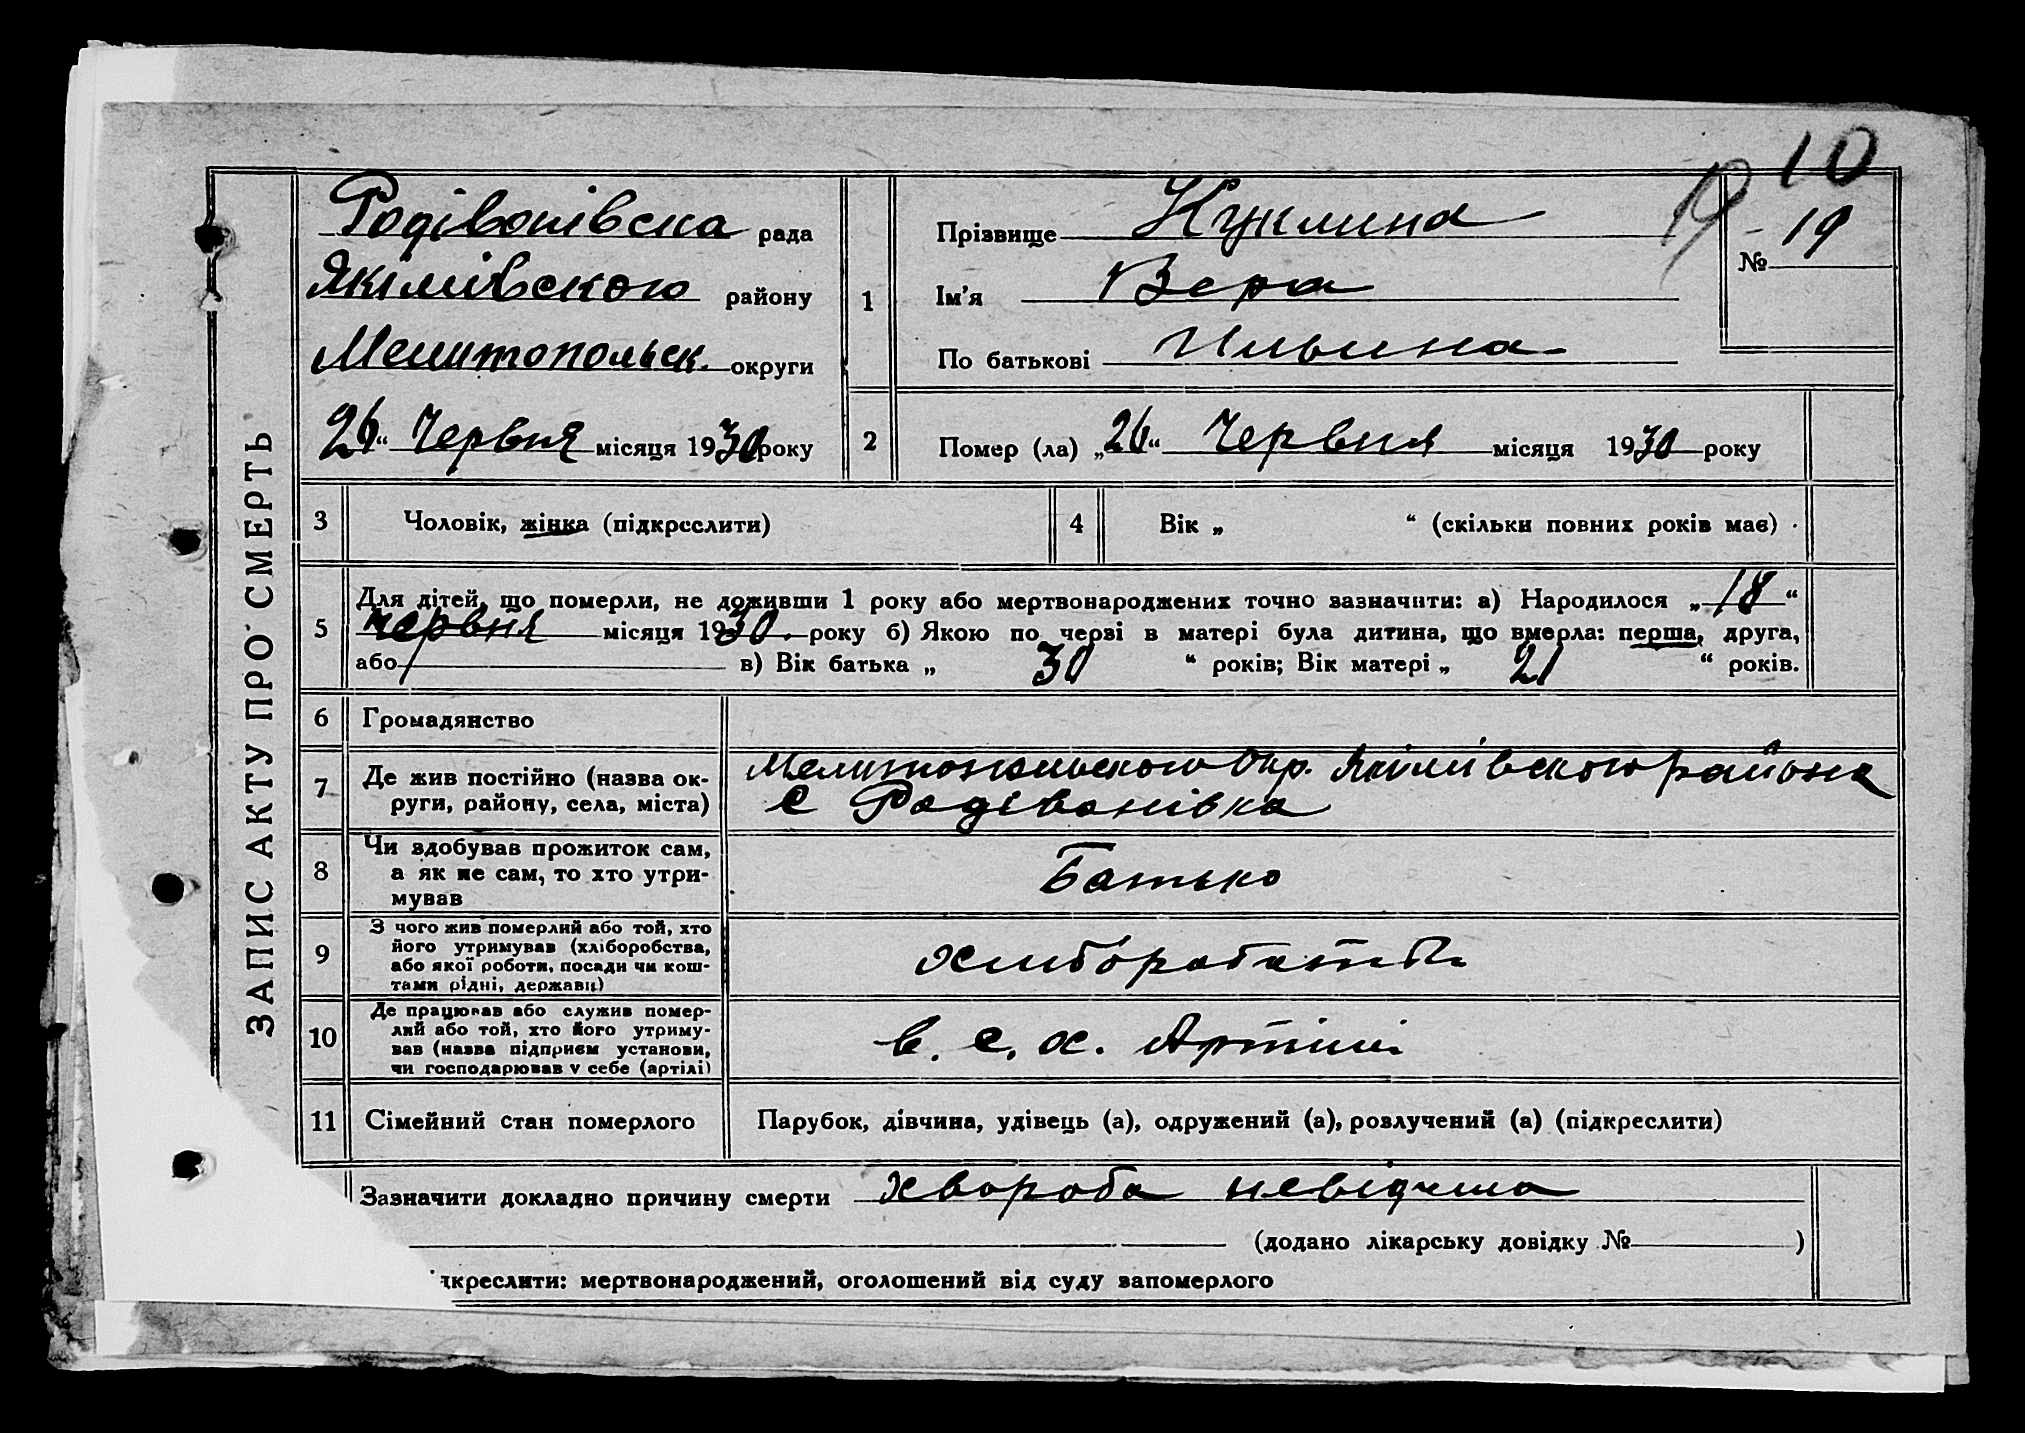 10
19
ЗАПИС АКТУ ПРО СМЕРТЬ
Родівонівска рада
Якімівского району
Мелитопольск. округи
26“ Червня місяця 1930 року
1
Прізвище
Ім'я Вера
По батькові Ильина
№ 19
2
Помер (ла) „26“ Червня місяця 1930 року
3 Чоловік, жінка (підкреслити)
4 Вік „ “ (скільки повних років має)
5
Для дітей, що померли, не доживши 1 року або мертвонароджених точно зазначити: а) Народилося „18“
червня місяця 1930. року б) Якою по черзі в матері була дитина, що вмерла: перша, друга,
або в) Вік батька „ 30 “ років; Вік матері „ 21 “ років.
6 Громадянство
7 Де жив постійно (назва ок-
руги, району, села, міста)
Мелитопольского Окр. Якімівского района
с Родівонівка
8 Чи здобував прожиток сам,
а як не сам, то хто утри-
мував
Батько
9 З чого жив померлий або той, хто
його утримував (хліборобства,
або якої роботи, посади чи кош-
тами рідні, держави)
10 Де працював або служив помер-
лий або той, хто його утриму-
вав (назва підприєм установи,
чи господарював у себе (артілі)
в. с. х. Артіли
11 Сімейний стан померлого
Парубок, дівчина, удівець (а), одружений (а), розлучений (а) (підкреслити)
Зазначити докладно причину смерти хвороба невідома
(додано лікарську довідку № )
дкреслити: мертвонароджений, оголошений від суду запомерлого